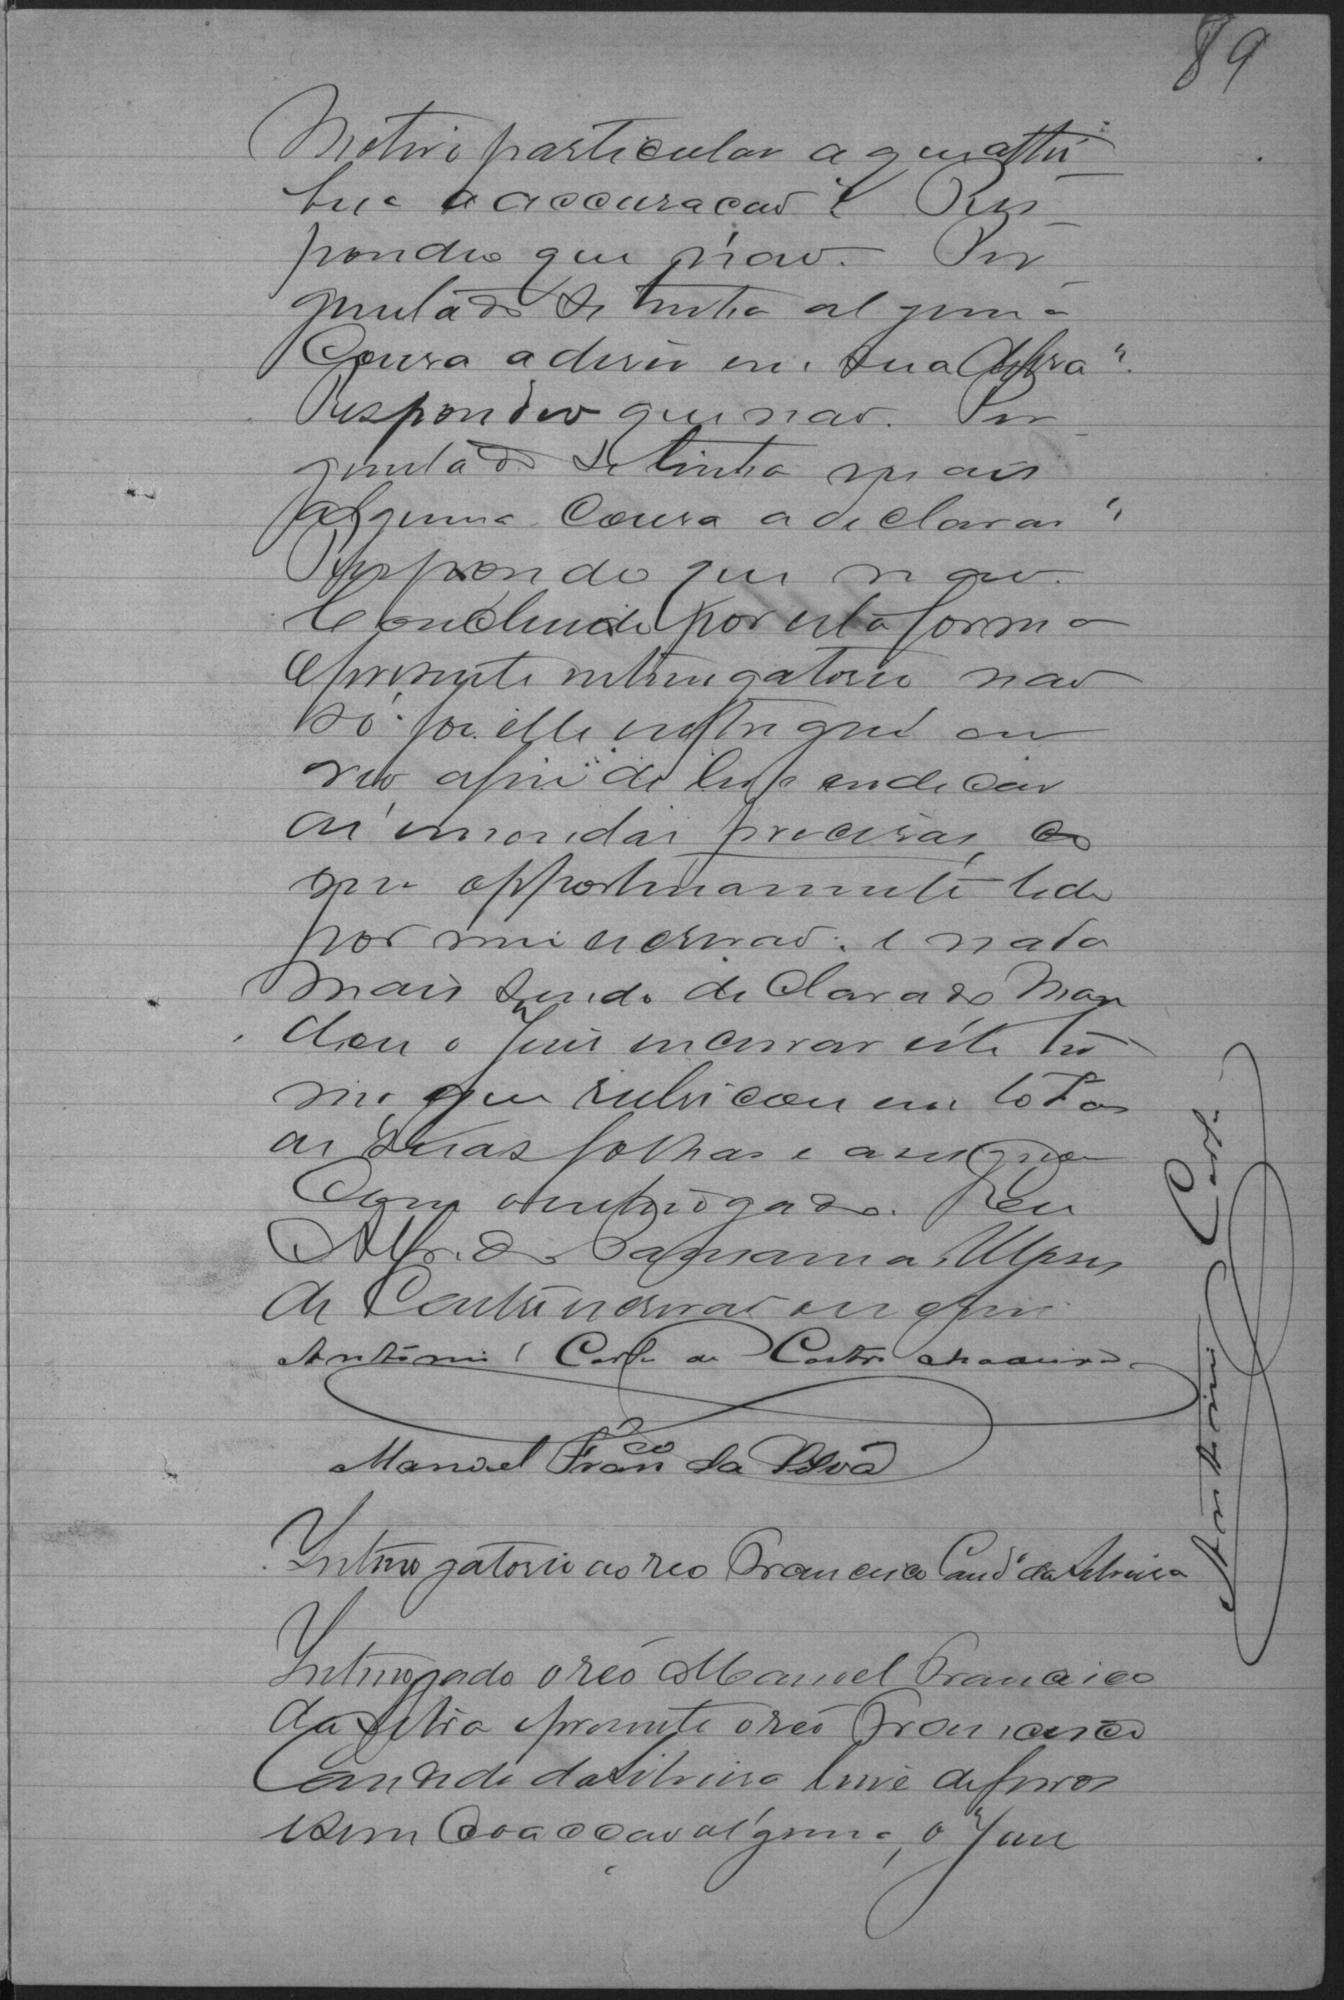 89
Motivo particular a que attri
bue a accusação? Res
pondeo que não. Per
guntado se tinha alguma
Cousa a diser em sua defesa?
Respondeo que não. Per
guntado se tinha mais
alguma cousa a declarar?
Respondeo que não.
Concluido por esta forma
o presente interrogatorio não
só foi elle entregue ao
reo afim de lhe indicar
as emendas precisas,
que opportunamente lido
por mim escrivão: e nada
mais sendo declarado Man
dou o Juis encerrar este ter
mo, que rubricou em todas
as suas folhas e assigna
Com o interrogado. Eu
Alfredo
de Castro escrivão escrevi
Antonio Carlos de Castro Madeira
Manoel Franco da Silva
Antonio Carlos
Interrogatorio ao reo Francisco Cando da Silveira
Interrogado o reo Manoel Francisco
da Silva e presente o reo Francisco
Candido da Silveira livre de ferros
e sem coacção alguma, o Juis